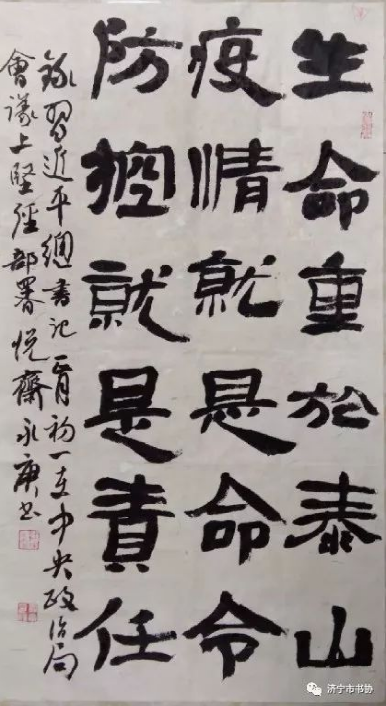 生命重於泰山
疫情就是命令
防控就是責任
錄習近平總書记正月初一在中央政治局
會議上堅經部署悅齋永庚书
济宁市书协